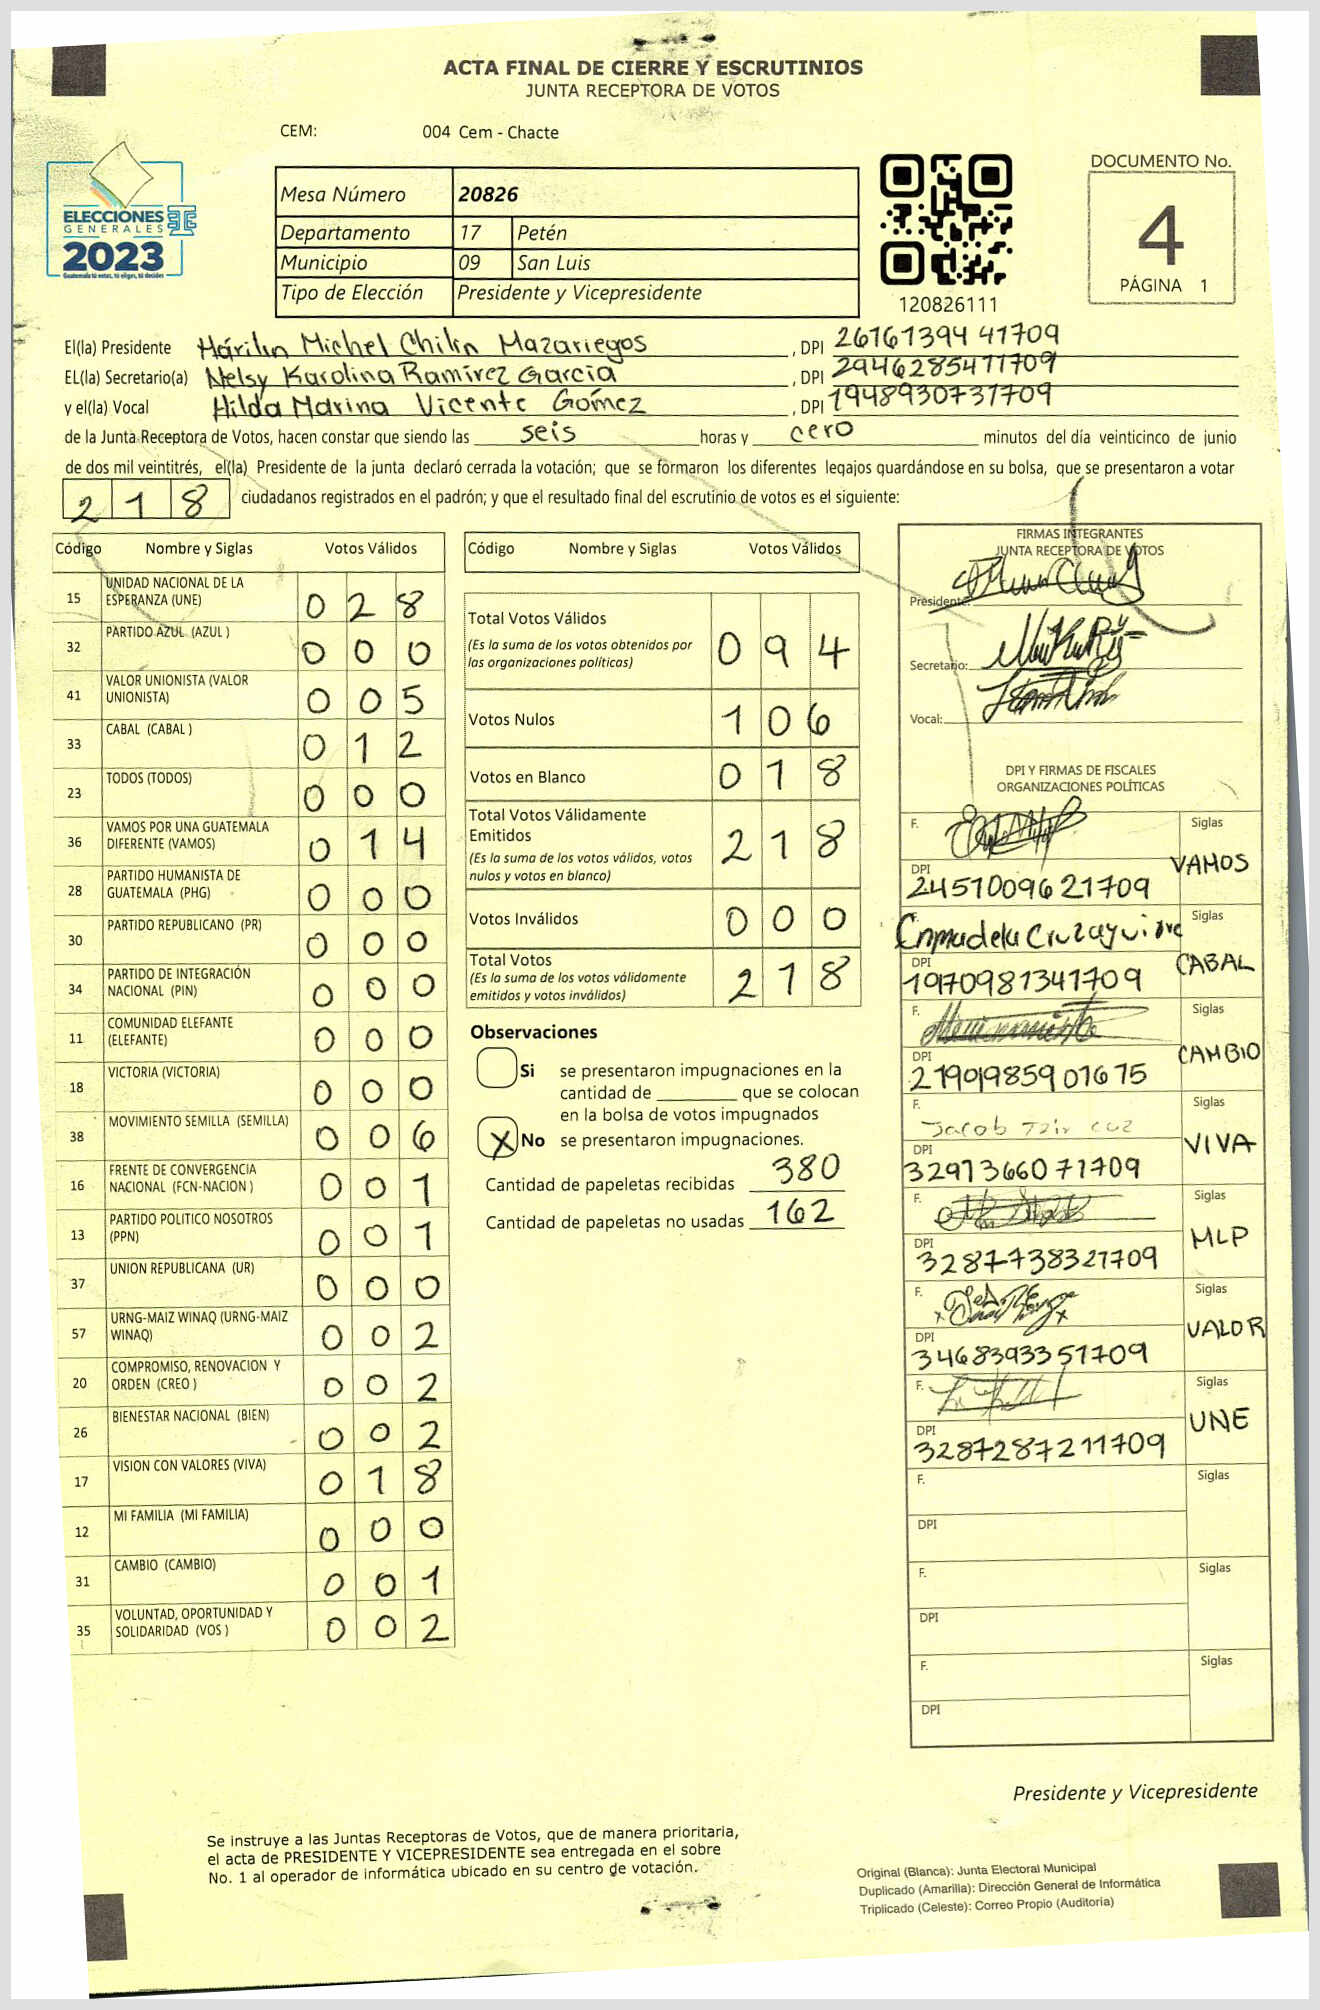 ACTA FINAL DE CIERRE Y ESCRUTINIOS
JUNTA RECEPTORA DE VOTOS
CEM: 004 Cem - Chacte
ELECCIONES
GENERALES
2023
Guatemala tú votas, tú eliges, tú decides
Mesa Número 20826
Departamento 17 Petén
Municipio 09 San Luis
Tipo de Elección Presidente y Vicepresidente
120826111
DOCUMENTO No.
4
PÁGINA 1
El(la) Presidente Márilin Michel Chilin Mazariegos , DPI 2616139441709
EL(la) Secretario(a) Nelsy Karolina Ramírez García , DPI 2946285411709
y el(la) Vocal Hilda Marina Vicente Gómez , DPI 1948930731709
de la Junta Receptora de Votos, hacen constar que siendo las seis horas y cero minutos del día veinticinco de junio
de dos mil veintitrés, el(la) Presidente de la junta declaró cerrada la votación; que se formaron los diferentes legajos guardándose en su bolsa, que se presentaron a votar
218 ciudadanos registrados en el padrón; y que el resultado final del escrutinio de votos es el siguiente:
Código Nombre y Siglas Votos Válidos
15 UNIDAD NACIONAL DE LA
ESPERANZA (UNE) 028
32 PARTIDO AZUL (AZUL ) 000
41 VALOR UNIONISTA (VALOR
UNIONISTA) 005
33 CABAL (CABAL ) 012
23 TODOS (TODOS) 000
36 VAMOS POR UNA GUATEMALA
DIFERENTE (VAMOS) 014
28 PARTIDO HUMANISTA DE
GUATEMALA (PHG) 000
30 PARTIDO REPUBLICANO (PR) 000
34 PARTIDO DE INTEGRACIÓN
NACIONAL (PIN) 000
11 COMUNIDAD ELEFANTE
(ELEFANTE) 000
18 VICTORIA (VICTORIA) 000
38 MOVIMIENTO SEMILLA (SEMILLA) 006
16 FRENTE DE CONVERGENCIA
NACIONAL (FCN-NACION ) 001
13 PARTIDO POLITICO NOSOTROS
(PPN) 001
37 UNION REPUBLICANA (UR) 000
57 URNG-MAIZ WINAQ (URNG-MAIZ
WINAQ) 002
20 COMPROMISO, RENOVACION Y
ORDEN (CREO ) 002
26 BIENESTAR NACIONAL (BIEN) 002
17 VISION CON VALORES (VIVA) 018
12 MI FAMILIA (MI FAMILIA) 000
31 CAMBIO (CAMBIO) 001
35 VOLUNTAD, OPORTUNIDAD Y
SOLIDARIDAD (VOS ) 002
Código Nombre y Siglas Votos Válidos
Total Votos Válidos
(Es la suma de los votos obtenidos por
las organizaciones políticas) 094
Votos Nulos 106
Votos en Blanco 018
Total Votos Válidamente
Emitidos
(Es la suma de los votos válidos, votos
nulos y votos en blanco) 218
Votos Inválidos 000
Total Votos
(Es la suma de los votos válidamente
emitidos y votos inválidos) 218
Observaciones
Si se presentaron impugnaciones en la
cantidad de ________ que se colocan
en la bolsa de votos impugnados
X No se presentaron impugnaciones.
Cantidad de papeletas recibidas 380
Cantidad de papeletas no usadas 162
FIRMAS INTEGRANTES
JUNTA RECEPTORA DE VOTOS
Presidente:
Secretario:
Vocal:
DPI Y FIRMAS DE FISCALES
ORGANIZACIONES POLÍTICAS
F. Siglas
VAMOS
DPI
2451009621709
F. Siglas
CABAL
DPI
1970981341709
F. Siglas
CAMBIO
DPI
21901985901675
F. Jacob Siglas
VIVA
DPI
3291366071709
F. Siglas
MLP
DPI
3287738321709
F. Siglas
VALOR
DPI
3468393351709
F. Siglas
UNE
DPI
3287287211709
F. Siglas
DPI
F. Siglas
DPI
F. Siglas
DPI
Presidente y Vicepresidente
Se instruye a las Juntas Receptoras de Votos, que de manera prioritaria,
el acta de PRESIDENTE Y VICEPRESIDENTE sea entregada en el sobre
No. 1 al operador de informática ubicado en su centro de votación.
Original (Blanca): Junta Electoral Municipal
Duplicado (Amarilla): Dirección General de Informática
Triplicado (Celeste): Correo Propio (Auditoria)